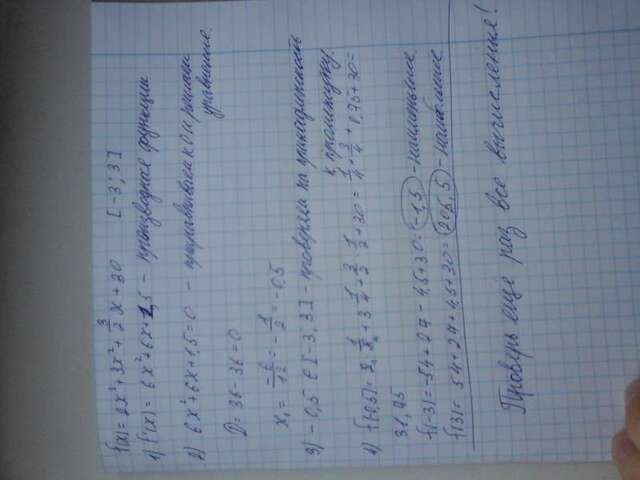 f(x) = 2x³+3x²+3/2x+30 [-3;3]
1) f'(x) = 6x²+6x+1,5 - производная функции
2) 6x²+6x+1,5=0 - приравниваем к 0 и решаем уравнение.
D = 36-36=0
x₁ = -6/12 = -1/2 = -0,5
3) -0,5 ∈ [-3;3] - проверяем на принадлежность к промежутку.
31,75
f(-3) = -54+27-4,5+30 = -1,5 - наименьшее
f(3) = 54+27+4,5+30 = 205,5 - наибольшее
Проверь еще раз все вычисления!